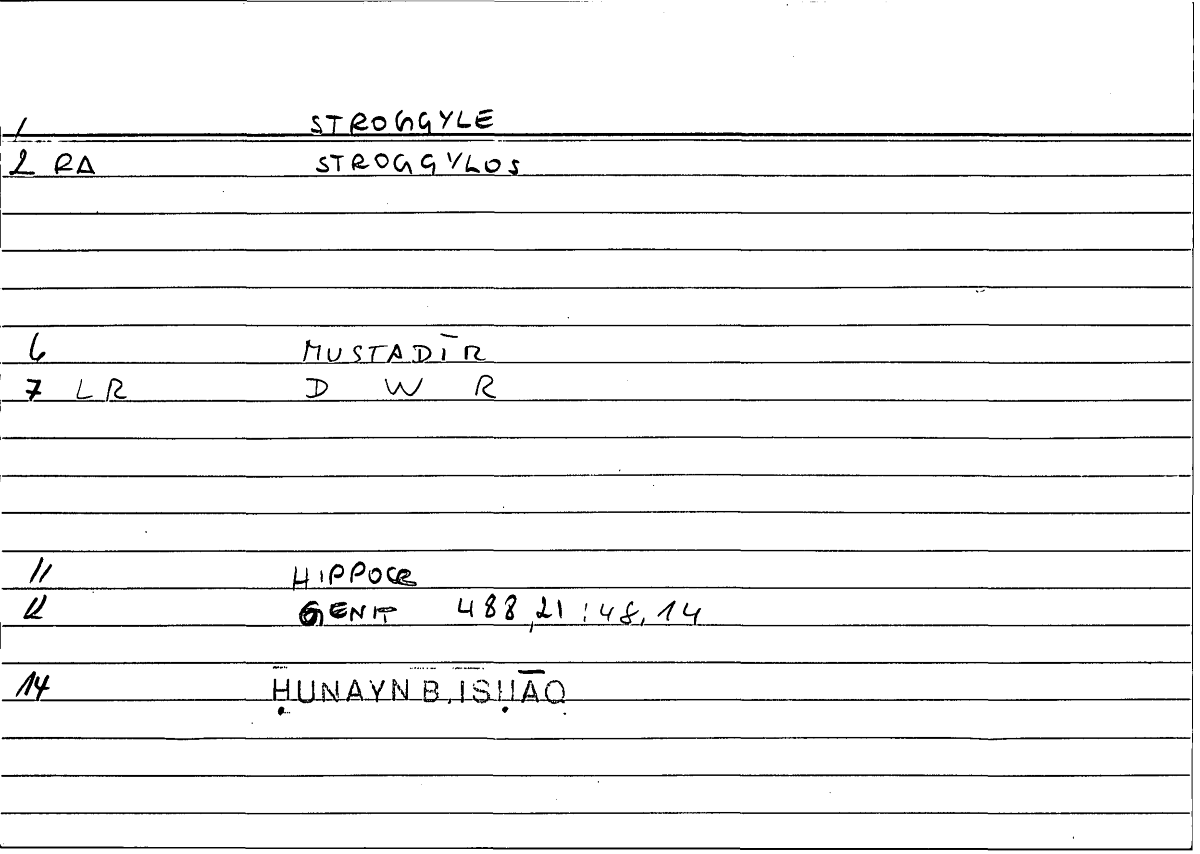 1 STROGGYLE
2 RA STROGGYLOS
6 MUSTADĪR
7 LR D W R
11 HIPPOCR
12 GENIT 488,21 : 48,14
14 ḤUNAYN B. ISḤĀQ